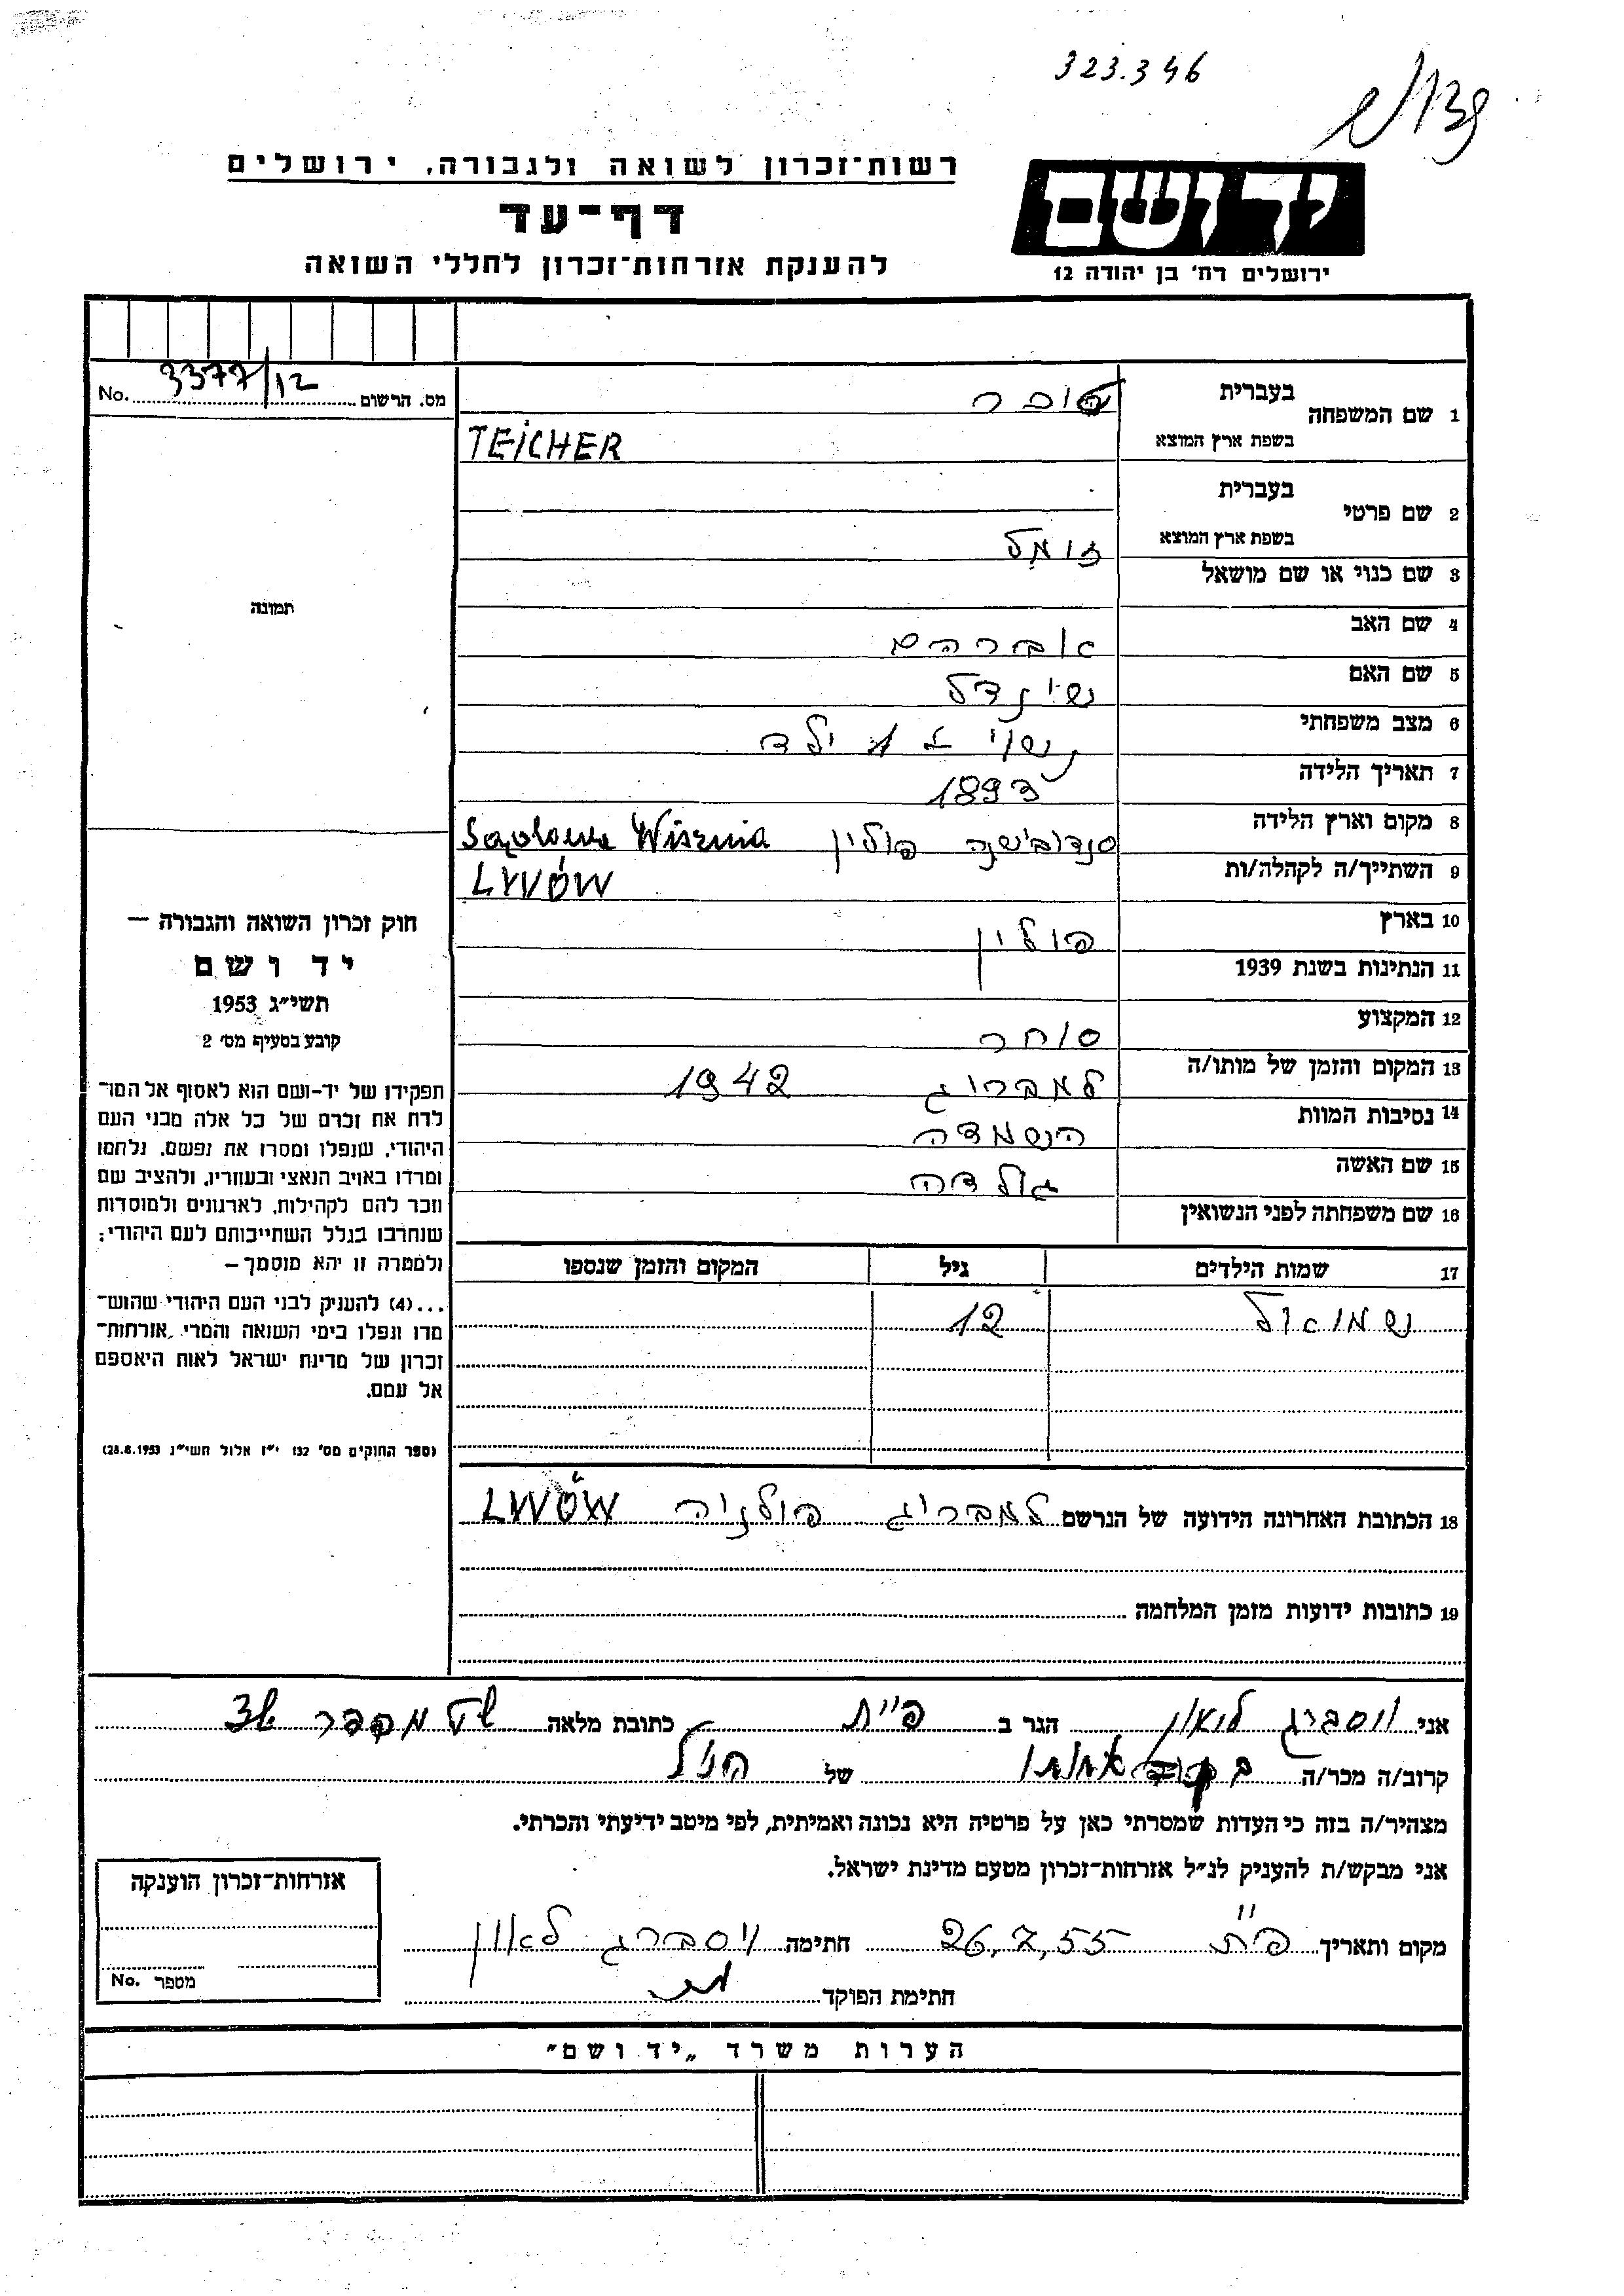 323.346
רשות־זכרון לשואה ולגבורה, ירושלים
דף־עד
להענקת אזרחות־זכרון לחללי השואה
יד ושם
ירושלים רח' בן יהודה 12
No. 3377/12 מס. הרשום
תמונה
חוק זכרון השואה והגבורה —
יד ושם
תשי״ג 1953
קובע בסעיף מס׳ 2
תפקידו של יד-ושם הוא לאסוף אל המו־
לדת את זכרם של כל אלה מבני העם
היהודי, שנפלו ומסרו את נפשם, נלחמו
ומרדו באויב הנאצי ובעוזריו, ולהציב שם
וזכר להם לקהילות, לארגונים ולמוסדות
שנחרבו בגלל השתייכותם לעם היהודי;
ולמטרה זו יהא מוסמך —
...(4) להעניק לבני העם היהודי שהוש־
מדו ונפלו בימי השואה והמרי, אזרחות־
זכרון של מדינת ישראל לאות היאספם
אל עמם.
(ספר החוקים מס׳ 132 י״ז אלול תשי״ג 28.8.1953)
1 שם המשפחה בעברית
בשפת ארץ המוצא TEICHER
2 שם פרטי בעברית
בשפת ארץ המוצא זומל
3 שם כנוי או שם מושאל
4 שם האב אברהם
5 שם האם שינדל
6 מצב משפחתי נשוי + 1 ילד
7 תאריך הלידה 1893
8 מקום וארץ הלידה פולין Wisznia
9 השתייך/ה לקהלה/ות LWÓW
10 בארץ פולין
11 הנתינות בשנת 1939
12 המקצוע סוחר
13 המקום והזמן של מותו/ה למבריג 1942
14 נסיבות המוות השמדה
15 שם האשה גולדה
16 שם משפחתה לפני הנשואין
17 שמות הילדים גיל המקום והזמן שנספו
שמואל 12
18 הכתובת האחרונה הידועה של הנרשם למבריג פולניה LWÓW
19 כתובות ידועות מזמן המלחמה
אני וסברג לאון הגר ב פ״ת כתובת מלאה
קרוב/ה מכר/ה של הנ״ל
מצהיר/ה בזה כי העדות שמסרתי כאן על פרטיה היא נכונה ואמיתית, לפי מיטב ידיעתי והכרתי.
אני מבקש/ת להעניק לנ״ל אזרחות־זכרון מטעם מדינת ישראל.
מקום ותאריך פ״ת 26,7,55 חתימה וסברג לאון
חתימת הפוקד
אזרחות־זכרון הוענקה
מספר No.
הערות משרד „יד ושם״